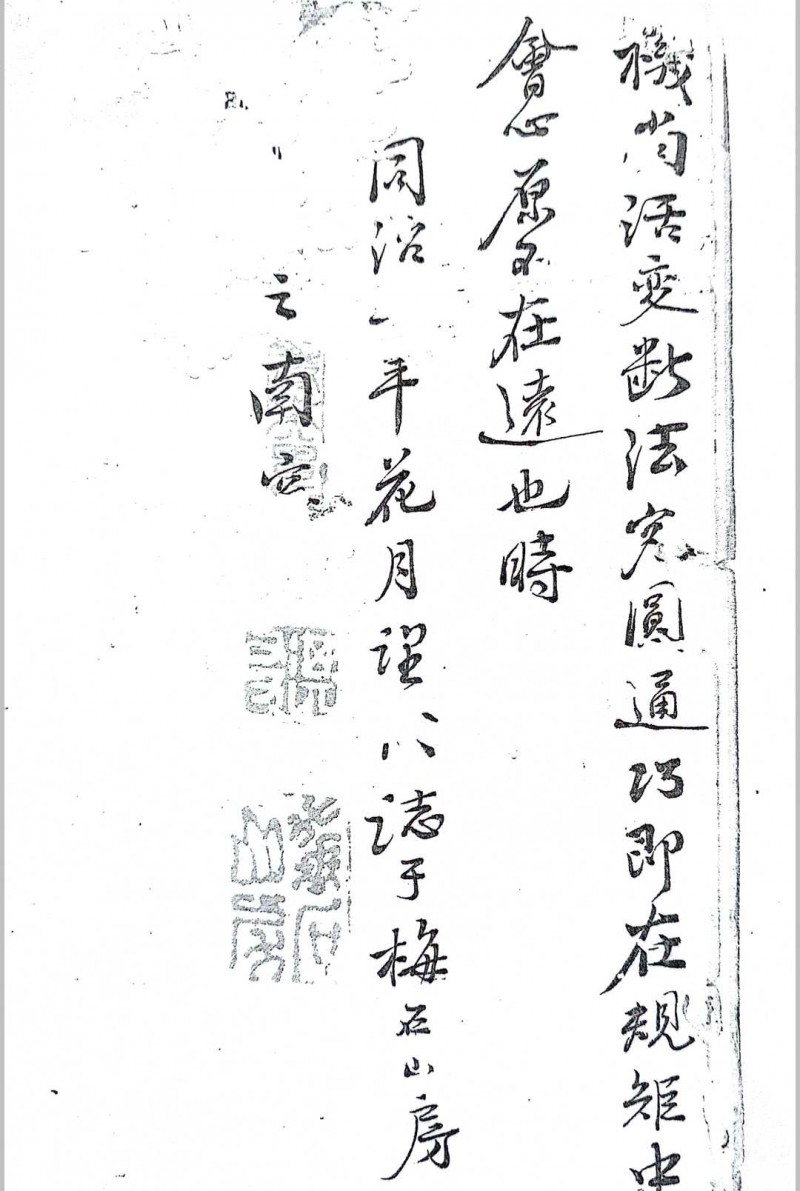 機尚活變斷法究圓通巧即在規矩中
會心原不在遠也時
同治一年花月望八誌于梅石山房
之南窗
梅石山房